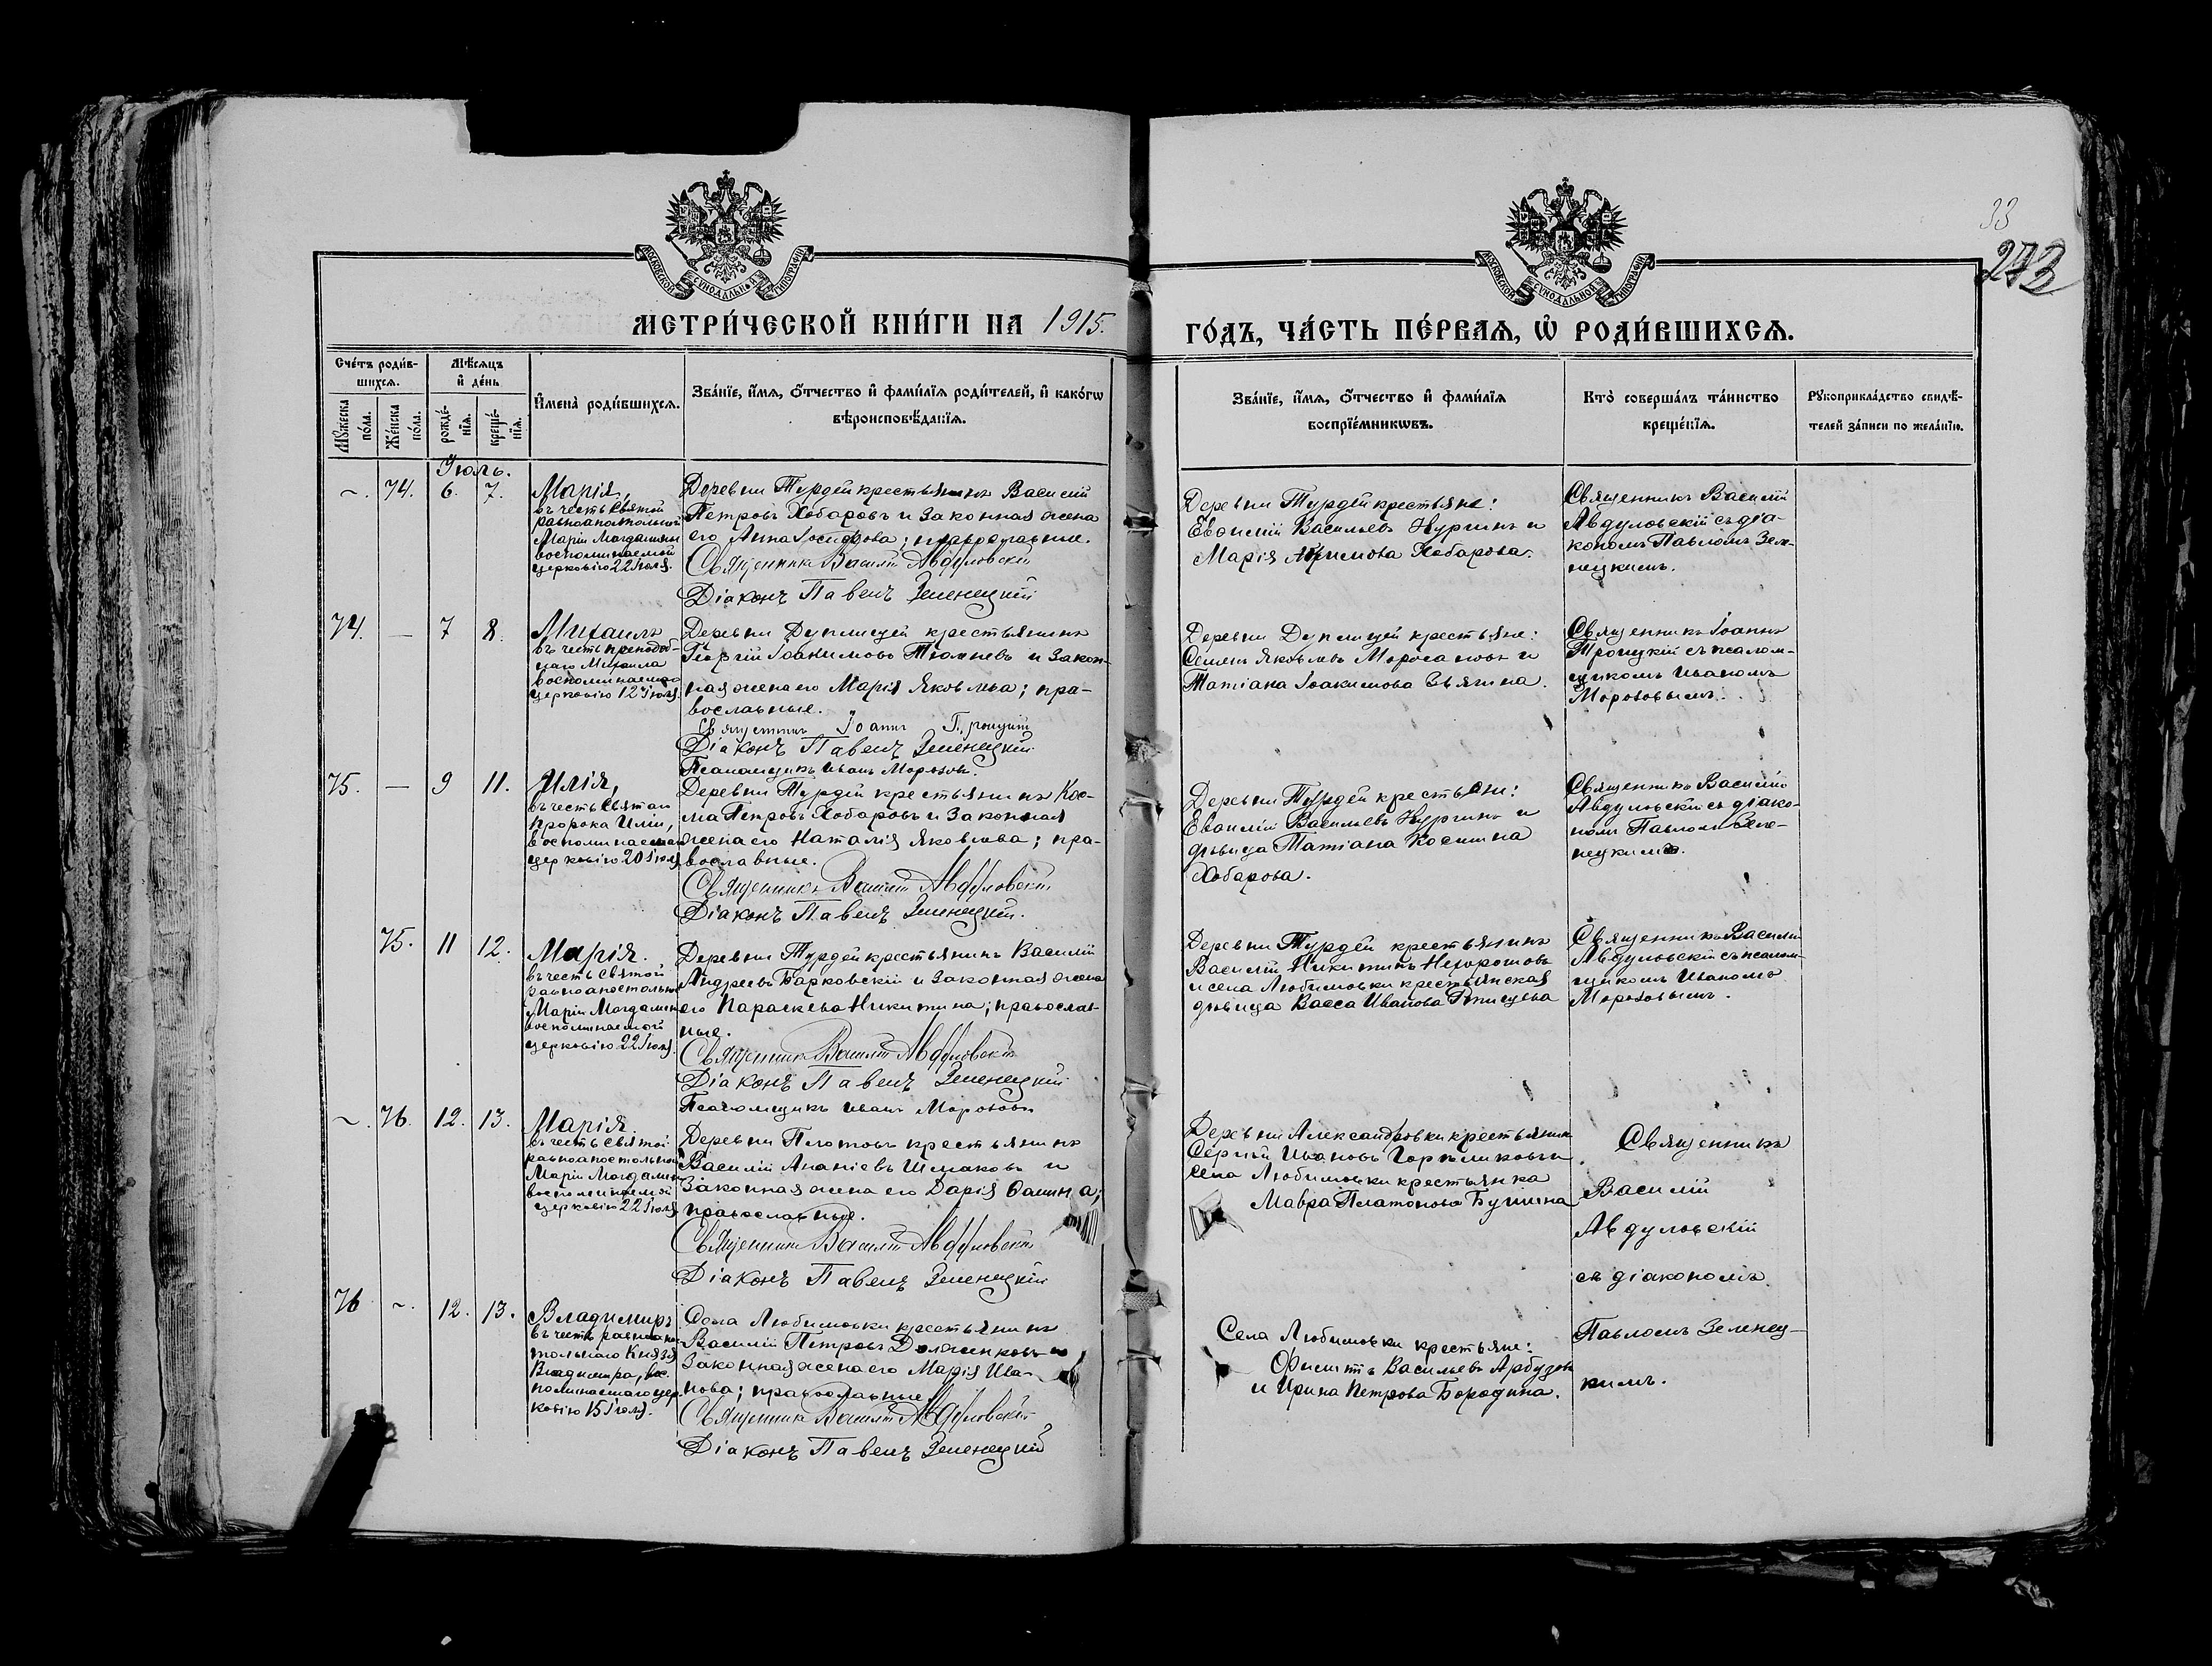 33
273
МОСКОВСКОЙ СѴНОДАЛЬНОЙ ТИПОГРАФІИ
МОСКОВСКОЙ СѴНОДАЛЬНОЙ ТИПОГРАФІИ
МЕТРИ́ЧЕСКОЙ КНИ́ГИ НА 1915.
ГО́ДЪ, ЧА́СТЬ ПЕ́РВАѦ, Ѡ҆ РОДИ́ВШИХСѦ.
Сче́тъ роди́в-
шихсѧ.
Мꙋ́жеска по́ла.
Же́нска по́ла.
Мѣ́сѧцъ
и҆ де́нь
рожде́-
нїѧ.
креще́-
нїѧ.
И҆мена̀ роди́вшихсѧ.
Зва́нїе, и҆́мѧ, ѻ҆́тчество и҆ фами́лїѧ роди́телей, и҆ како́гѡ
вѣроисповѣ́данїѧ.
Зва́нїе, и҆́мѧ, ѻ҆́тчество и҆ фами́лїѧ
воспрїе́мникѡвъ.
Кто̀ соверша́лъ та́инство
креще́нїѧ.
Рꙋкоприкла́дство свидѣ́-
телей за́писи по жела́нїю.
Іюль.
~. 74. 6. 7.
Марія,
въ честь Святой
равноапостольной
Маріи Магдалины
воспоминаемой
церковію 22 Іюля.
Деревни Турдей крестьянинъ Василій
Петровъ Хобаровъ и законная жена
его Анна Іосифова; православные.
Священникъ Василій Авдуловскій
Діаконъ Павелъ Зеленецкій
Деревни Турдей крестьяне:
Евсилій Васильевъ Нургинъ и
Марія Хобарова.
Священникъ Василій
Авдуловскій съ діа-
кономъ Павломъ Зеле-
нецкимъ.
74. — 7 8.
Михаилъ
въ честь преподоб-
наго Михаила
воспоминаемаго
церковію 12 Іюля.
Деревни Дуплищей крестьянинъ
Георгій Іоакимовъ Тюпневъ и закон-
ная жена его Марія Яковлева; пра-
вославные.
Священникъ Іоаннъ Троицкій
Діаконъ Павелъ Зеленецкій
Псаломщикъ Иванъ Морозовъ.
Деревни Дуплищей крестьяне:
Семенъ Яковлевъ и
Татіана Іоакимова
Священникъ Іоаннъ
Троицкій съ псалом-
щикомъ Иваномъ
Морозовымъ.
75. — 9 11.
Илія,
въ честь Святаго
пророка Иліи,
воспоминаемаго
церковію 20 Іюля.
Деревни Турдей крестьянинъ Кос-
ма Петровъ Хобаровъ и законная
жена его Наталія Яковлева; пра-
вославные.
Священникъ Василій Авдуловскій
Діаконъ Павелъ Зеленецкій.
Деревни Турдей крестьяне:
Евсилій Васильевъ Нургинъ и
дѣвица Татіана Космина
Хобарова.
Священникъ Василій
Авдуловскій съ діако-
номъ Павломъ Зеле-
нецкимъ.
75. 11 12.
Марія.
въ честь Святой
равноапостольной
Маріи Магдалины
воспоминаемой
церковію 22 Іюля.
Деревни Турдей крестьянинъ Василій
Андреевъ Барковскій и законная жена
его Параскева Никитина; православ-
ные.
Священникъ Василій Авдуловскій
Діаконъ Павелъ Зеленецкій
Псаломщикъ Иванъ Морозовъ
Деревни Турдей крестьянинъ
Василій Никитинъ Нехорошовъ
и села Любимовки крестьянская
дѣвица Васса Иванова
Священникъ Василій
Авдуловскій съ псалом-
щикомъ Иваномъ
Морозовымъ.
~. 76. 12. 13.
Марія.
въ честь Святой
равноапостольной
Маріи Магдалины
воспоминаемой
церковію 22 Іюля.
Деревни Платовъ крестьянинъ
Василій Ананіевъ Шмаковъ и
законная жена его Дарія Ѳомина;
православные.
Священникъ Василій Авдуловскій
Діаконъ Павелъ Зеленецкій
Деревни Александровки крестьянинъ
Сергѣй Ивановъ и
села Любимовки крестьянка
Мавра Платонова
Священникъ
Василій
Авдуловскій
съ діакономъ
Павломъ Зеленец-
кимъ.
76 ~. 12. 13.
Владимиръ
въ честь равноапос-
тольнаго Князя
Владимира, вос-
поминаемаго цер-
ковію 15 Іюля.
Села Любимовки крестьянинъ
Василій Петровъ Долженковъ и
законная жена его Марія Ива-
нова; православные.
Священникъ Василій Авдуловскій
Діаконъ Павелъ Зеленецкій
Села Любимовки крестьяне:
Васильевъ Арбузовъ
и Ирина Петрова Бородина.